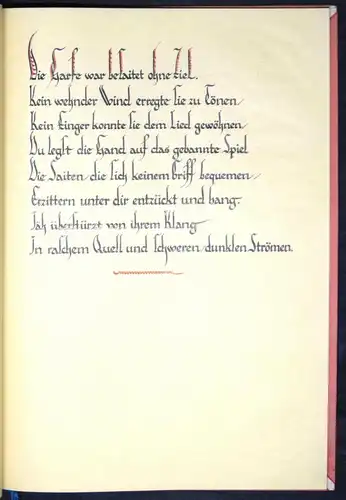 Die Harfe war besaitet ohne Ziel.
Kein wehnder Wind erregte sie zu Tönen/
Kein Finger konnte sie dem Lied gewöhnen/
Du legst die Hand auf das gebannte Spiel
Die Saiten/die sich keinem Griff bequemen/
Erzittern unter dir entzückt und bang.
Jäh überstürzt von ihrem Klang
In raschem Quell und schweren/dunklen Strömen.